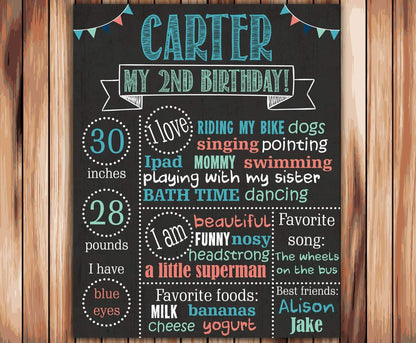 CARTER
MY 2ND BIRTHDAY!
30
inches
28
pounds
I have
blue
eyes
I love
RIDING MY BIKE dogs
singing pointing
Ipad MOMMY swimming
playing with my sister
BATH TIME dancing
I am
beautiful
FUNNY nosy
headstrong
a little superman
Favorite
song:
The wheels
on the bus
Favorite foods:
MILK bananas
cheese yogurt
Best friends:
Alison
Jake